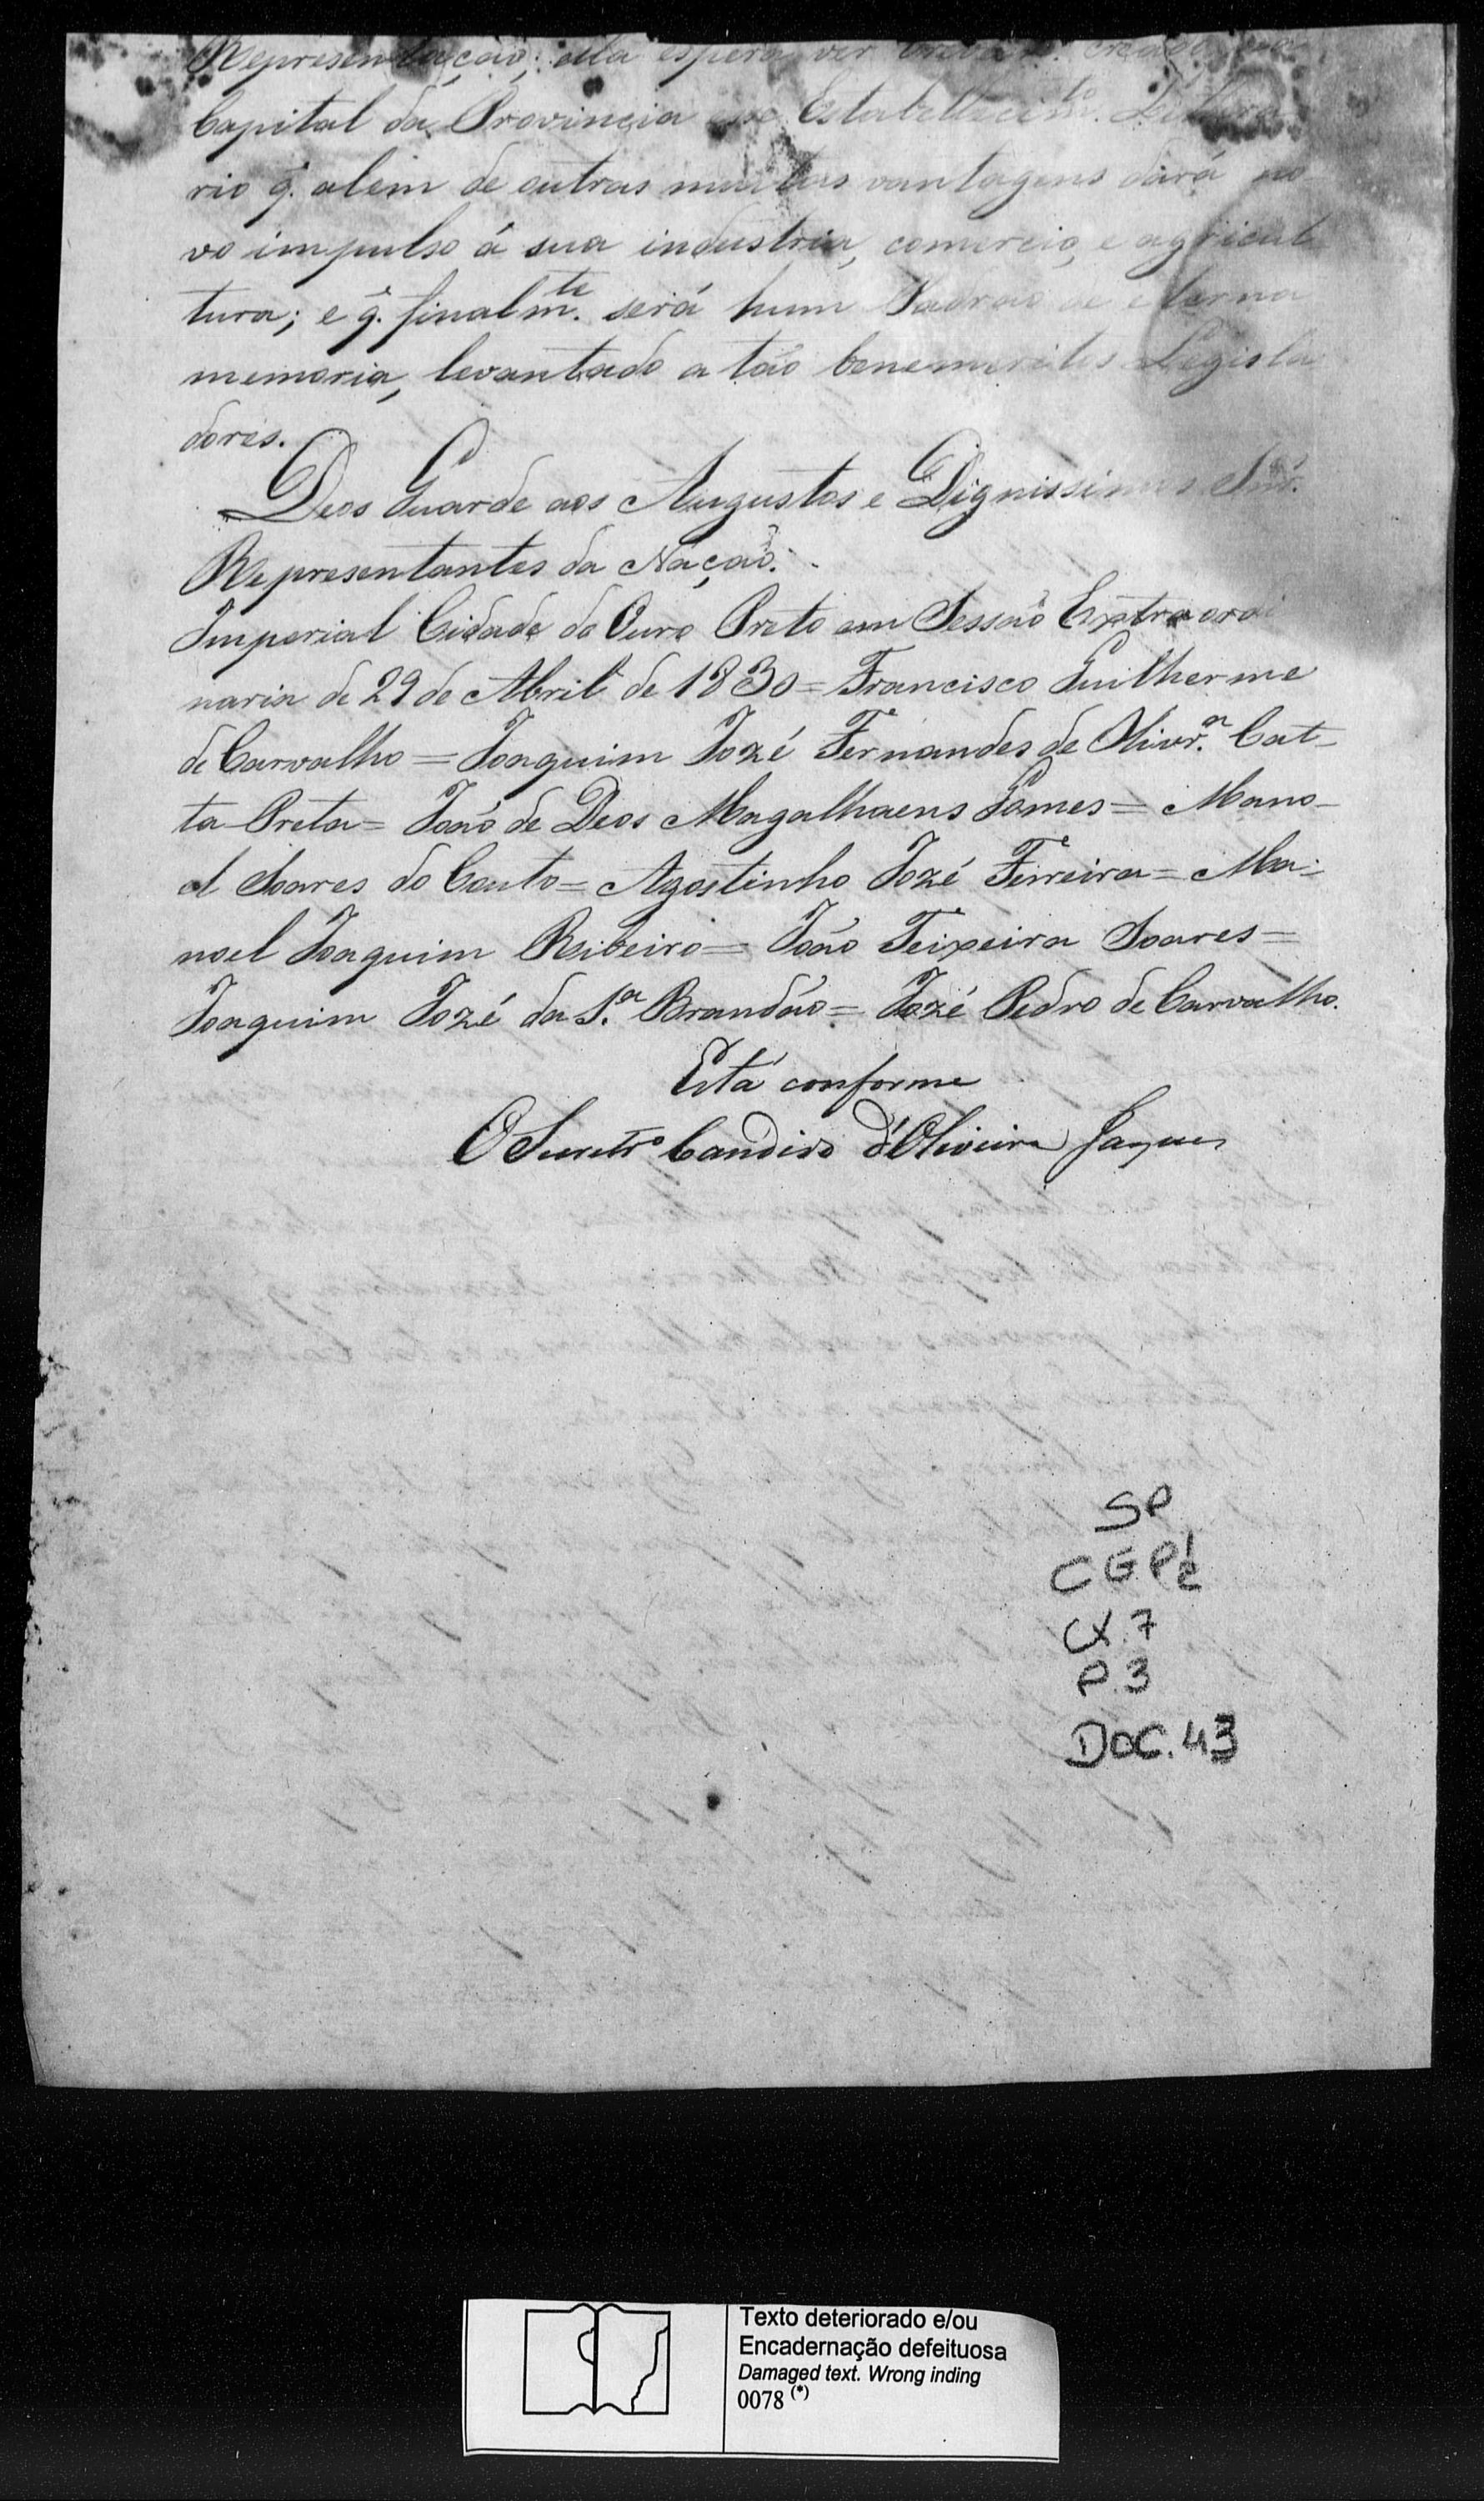 Representação; ella espera ver creado na
Capital da Provincia esse Estabellecim.to Littera
rio q̃. alem de outras muitas vantagens dará no
vo impulso á sua industria, comercio, e agricul
tura; e q̃. finalm.te será hum Padrão de eterna
memoria, levantado a tão benemeritos Legisla
dores.
Deos Guarde aos Augustos e Dignissimos Snr.es
Representantes da Nação.
Imperial Cidade do Ouro Preto em Sessão Extraordi
naria de 29 de Abril de 1830 = Francisco Guilherme
de Carvalho = Joaquim Jozé Fernandes de Olivr.a Cat-
ta Preta = João de Deos Magalhaens Gomes = Mano-
el Soares do Couto = Agostinho Jozé Ferreira = Ma-
noel Joaquim Ribeiro = João Teixeira Soares =
Joaquim Jozé da S.a Brandão = Jozé Pedro de Carvalho.
Está conforme
O Secretr.o Candido d'Oliveira Jaques
SP
CGP 1/2
CX.7
P.3
DOC.43
Texto deteriorado e/ou
Encadernação defeituosa
Damaged text. Wrong inding
0078 (*)